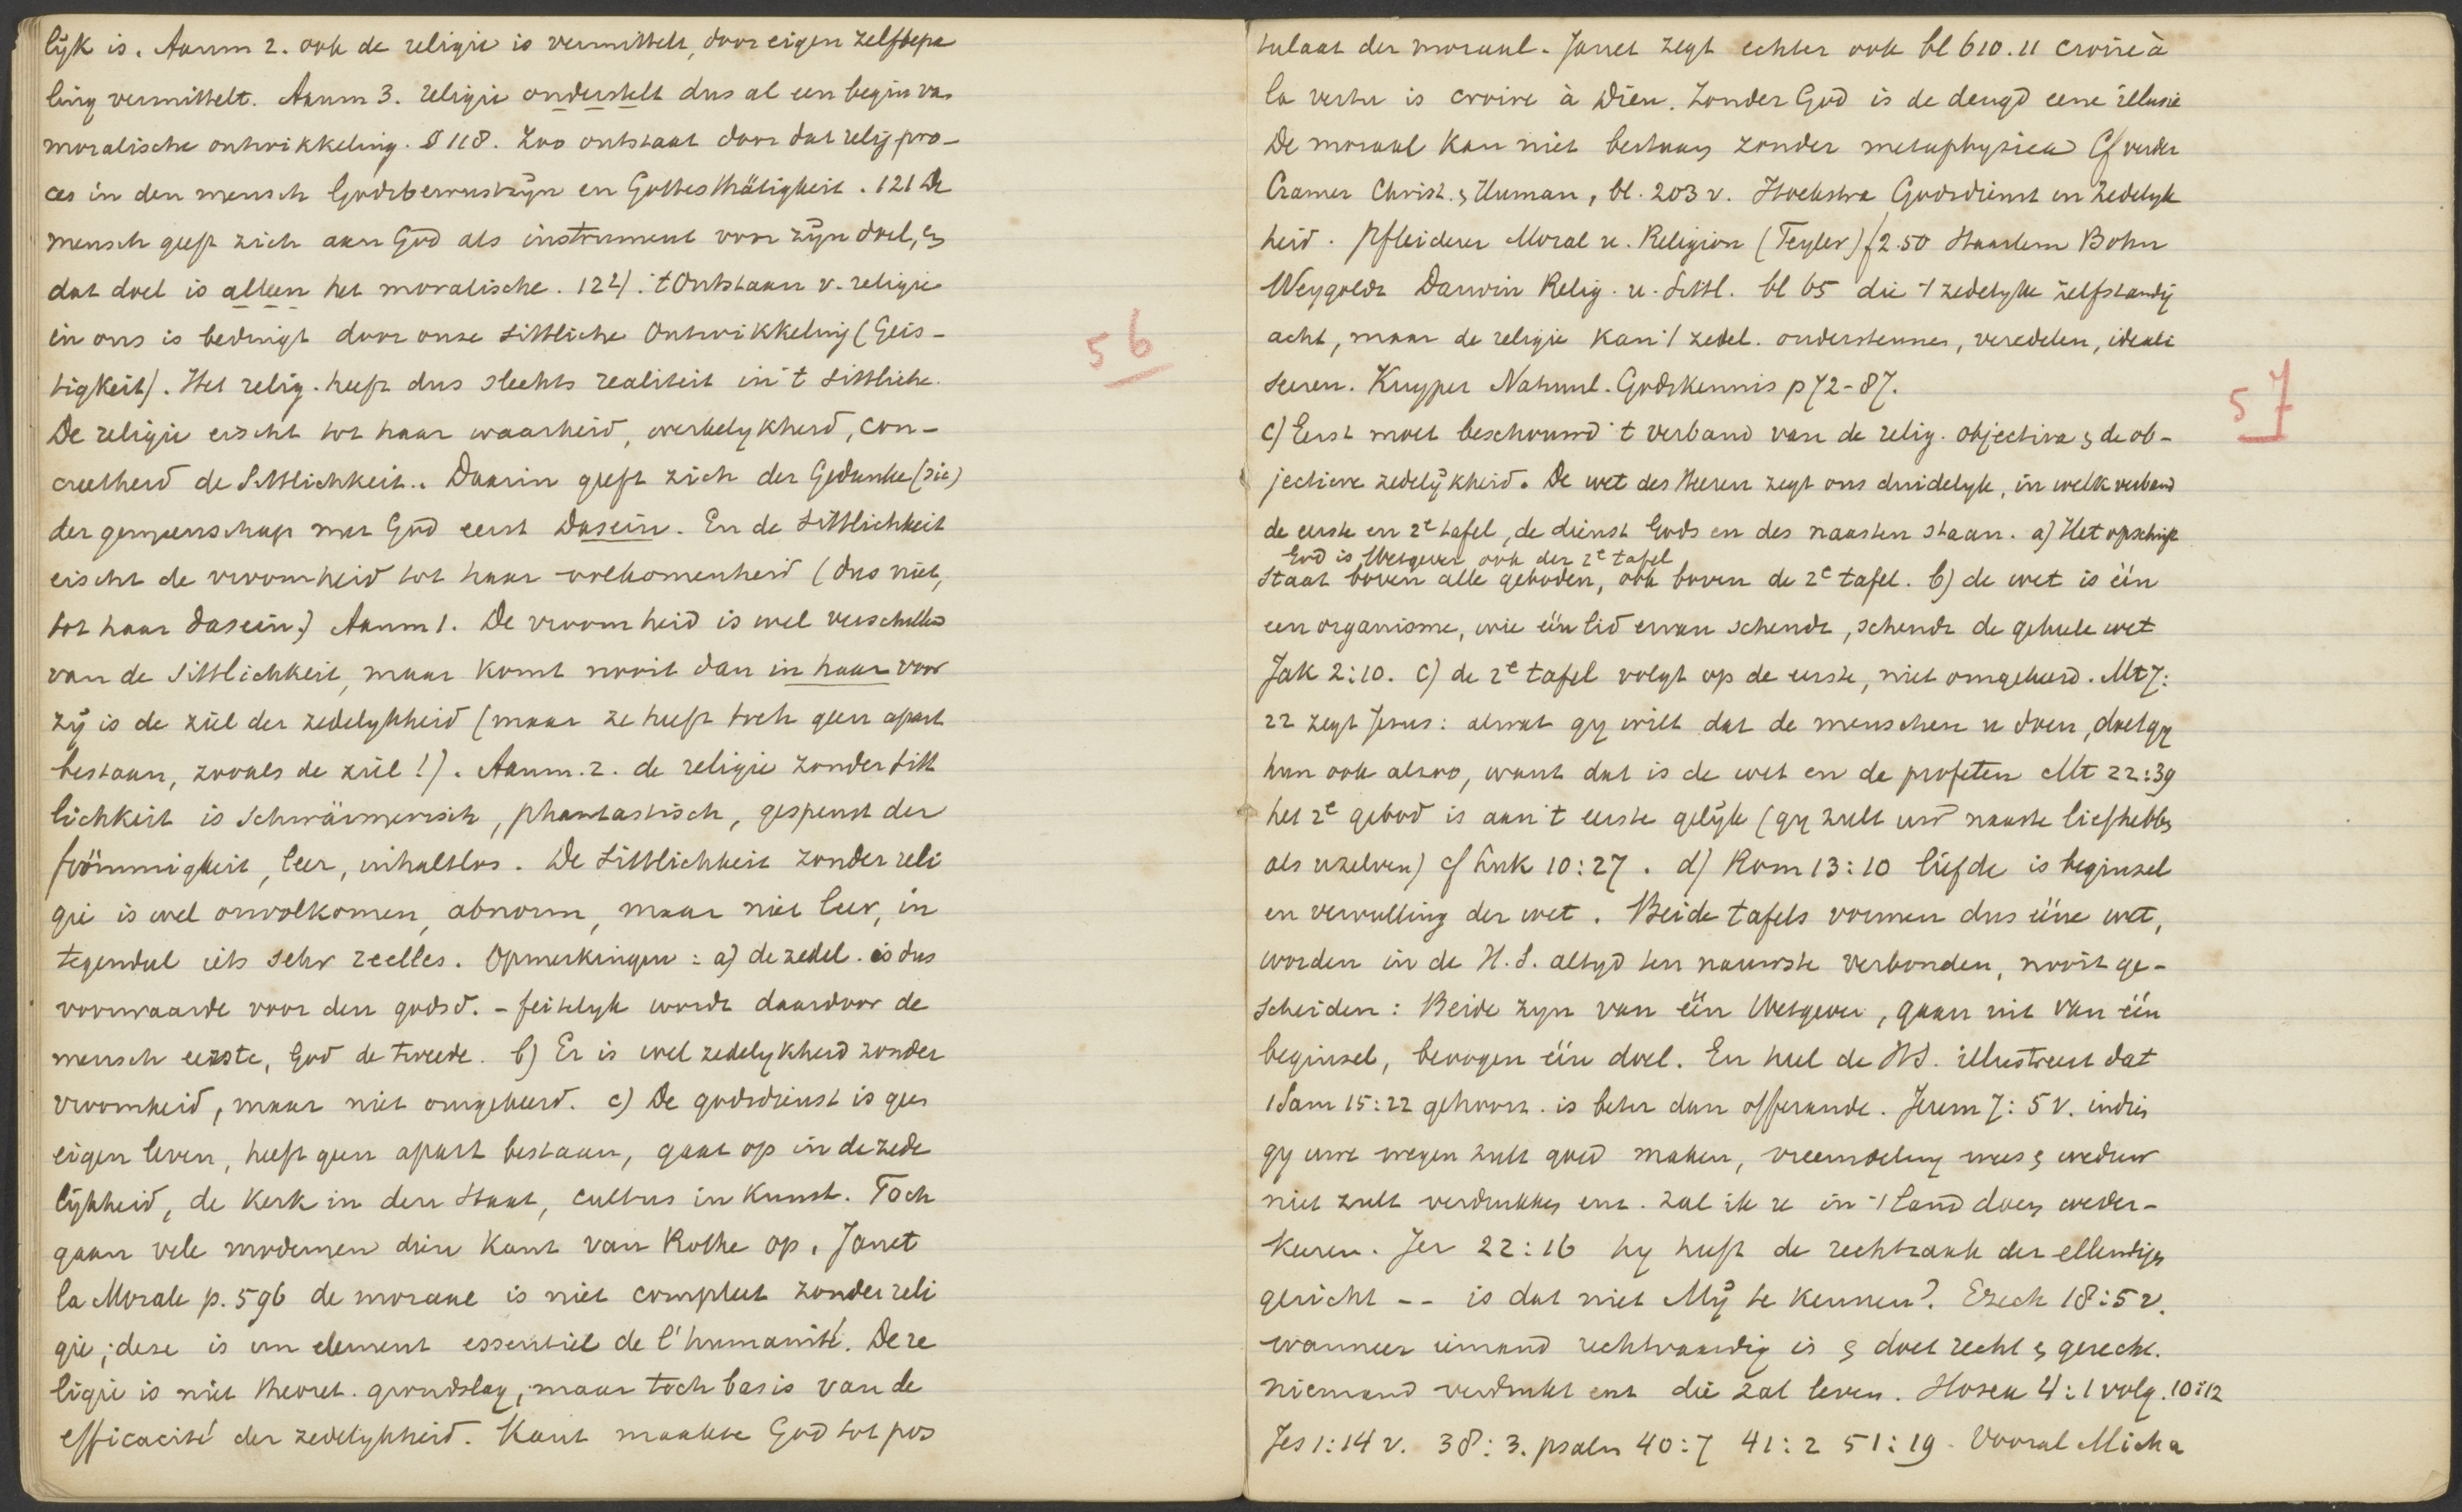 lijk is. Aanm 2. ook de religie is vermittelt, door eigen zelfbepa
ling vermittelt. Aanm 3. religie onderstelt dus al een begin van
moralische ontwikkeling. § 118. Zoo ontstaat door dat relig pro-
ces in den mensch Godsbewustzijn en Gottesthätigkeit. 121 De
mensch geeft zich aan God als instrument voor zijn doel, en
dat doel is alleen het moralische. 124). 't Ontstaan v. religie
in ons is bedingt door onse sittliche Ontwikkeling (Geis-
tigkeit). Het relig. heeft dus slechts realiteit in 't sittliche.
De religie eischt tot haar waarheid, werkelykheid, con-
creetheid de Sittlichkeit. Daarin geeft zich der Gedanke (die)
der gemeenschap met God eerst Dasein. En de Sittlichkeit
eischt de vroomheid tot haar volkomenheid (dus niet,
tot haar dasein.) Aanm 1. De vroomheid is wel verschillend
van de Sittlichkeit, maar komt nooit dan in haar voor
zij is de ziel der zedelykheid (maar ze heeft toch geen apart
bestaan, zooals de ziel!). Aanm. 2. de religie zonder sitt
lichkeit is Schwärmerisch, phantastisch, gespenst der
frömmigkeit, leer, inhaltlos. De Sittlichkeit zonder reli
gie is wel onvolkomen, abnorm, maar niet leer, in
tegendeel iets sehr reelles. Opmerkingen: a) de zedel. is dus
voorwaarde voor den godsd. - feitelyk wordt daardoor de
mensch eerste, God de tweede. b) Er is wel zedelykheid zonder
vroomheid, maar niet omgekeerd. c) De godsdienst is geen
eigen leven, heeft geen apart bestaan, gaat op in de zede
lijkheid, de Kerk in den Staat, cultus in Kunst. Toch
gaan vele modernen dien kant van Rothe op. Janet
la Morale p. 596 de moraal is niet compleet zonder reli
gie; deze is un element essentiel de l'humanité. De re
ligie is niet theoret. grondslag, maar toch basis van de
efficacité der zedelykheid. Kant maakte God tot pos
56
tulaat der moraal. Janet zegt echter ook bl 610. 11 croire à
la vertu is croire à Dieu. Zonder God is de deugd eene illusie
De moraal kan niet bestaan zonder metaphysica Cf verder
Cramer Christ. & Human, bl. 203 v. Hoekstra Godsdienst en Zedelyk
heid. Pfleiderer Moral u. Religion (Teyler) f 2.50 Haarlem Bohn
Weygoldt Darwin Relig. u. Sittl. bl 65 die 't zedelyke zelfstandig
acht, maar de religie kan 't zedel. ondersteunen, veredelen, ideali
seeren. Kuyper Natuurl. Godskennis p 72-87.
c) Eerst moet beschouwd 't verband van de relig. objectiva & de ob-
jectieve zedelijkheid. De wet des Heeren zegt ons duidelyk, in welk verband
de eerste en 2e tafel, de dienst Gods en des naasten staan. a) Het opschrift
God is Wetgever ook der 2e tafel
staat boven alle geboden, ook boven de 2e tafel. b) de wet is één
een organisme, wie één lid ervan schendt, schendt de geheele wet
Jak 2:10. c) de 2e tafel volgt op de eerste, niet omgekeerd. Mt 7:
22 zegt Jesus: alwat gy wilt dat de menschen u doen, doet gy
hun ook alzoo, want dat is de wet en de profeten Mt 22:39
het 2e gebod is aan 't eerste gelijk (gy zult uw naaste liefhebben
als uzelven) cf Luk 10:27. d) Rom 13:10 liefde is beginsel
en vervulling der wet. Beide tafels vormen dus ééne wet,
worden in de H.S. altyd ten nauwste verbonden, nooit ge-
scheiden: Beide zyn van één Wetgever, gaan uit van één
beginsel, beoogen één doel. En heel de HS. illustreert dat
1 Sam 15:22 gehoorz. is beter dan offerande. Jerem 7: 5 v. indien
gy uwe wegen zult goed maken, vreemdeling wees & weduw
niet zult verdrukken enz. zal ik u in 't land doen weder-
keeren. Jer 22:16 hy heeft de rechtzaak der ellendigen
gericht -- is dat niet Mij te kennen? Ezech 18:5 v.
wanneer iemand rechtvaardig is & doet recht & gerecht.
niemand verdrukt enz die zal leven. Hosea 4:1 volg. 10:12
Jes 1:14 v. 38:3. psalm 40:7 41:2 51:19. Vooral Micha
57